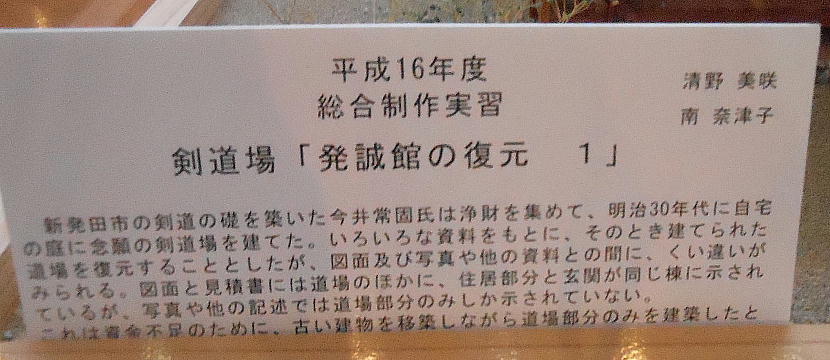 平成16年度
総合制作実習
清野 美咲
南 奈津子
剣道場「発誠館の復元 1」
新発田市の剣道の礎を築いた今井常固氏は浄財を集めて、明治30年代に自宅
の庭に念願の剣道場を建てた。いろいろな資料をもとに、そのとき建てられた
道場を復元することとしたが、図面及び写真や他の資料との間に、くい違いが
みられる。図面と見積書には道場のほかに、住居部分と玄関が同じ棟に示され
ているが、写真や他の記述では道場部分のみしか示されていない。
これは資金不足のために、古い建物を移築しながら道場部分のみを建築したと